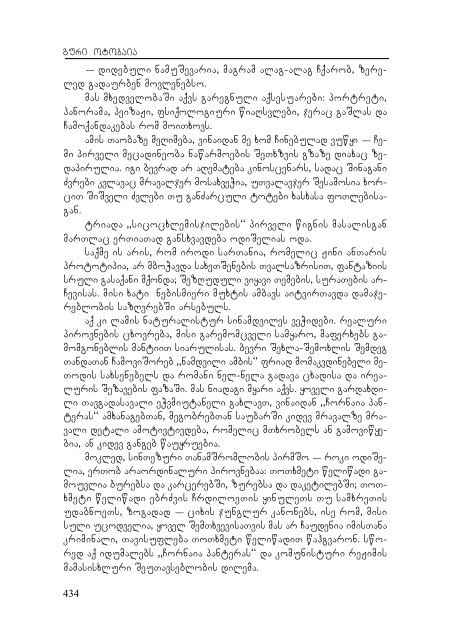 გური ოტობაია
— დიდებული ნამუშევარია, მაგრამ ალაგ-ალაგ ჩქარობ, ზერე-
ლედ გადაურბენ მოვლენებსო.
მას მხედველობაში აქვს გარეგნული აქსესუარები: პორტრეტი,
პანორამა, პეიზაჟი, ფსიქოლოგიური წიაღსვლები, ჯერაც გაშლას და
ჩამოქანდაკებას რომ მოითხოვს.
ამის თაობაზე მეღიმება, ვინაიდან მე ხომ ჩინებულად ვუწყი — ჩე-
მი პირველი მეცადინეობა ნაწარმოების შეთხზვის გზაზე დიახაც ზე-
დაპირულია. იგი ბევრად არ აღემატება კინოსცენარს, სადაც შინაგანი
ძვრები კვლავაც მრავალჯერ მოსახვეჭია, უთვალავჯერ შესამოსია ხორ-
ცით შიშველი ძვლები თუ განძარცული ტოტები ხასხასა ფოთლებისა-
გან.
ტრიადა „სიცოცხლემისჯილების“ პირველი წიგნის მასალისგან
მართლაც ერთიათად განსხვავდება ოდიშელიას ოდა.
საქმე ის არის, რომ იროდი სართანია, რომელიც ჟინი ანთარის
პროტოტიპია, არ მბოჭავდა სახეთშენების თვალსაზრისით, ფანტაზიის
სრული გასაქანი მქონდა; შეზღუდული ვიყავი თემების, სურათების არ-
ჩევისას. მისი ხატი ნებისმიერი მუხტის ამბავს აიტვირთავდა დამაჯე-
რებლობის საზღვრებში არსებულს.
აქ კი ლამის ნატურალისტურ სინამდვილეს ვეჭიდები. რეალური
პიროვნების ცხოვრება, მისი გარემომცველი სამყარო, მაფერხებს გა-
მომგონებლის მანტიით სიარულისას. ბევრი შეხლა-შემოხლის შემდეგ
თანდათან ჩამოვიშორებ „ნამდვილი ამბის“ ფრიად მომაკვდინებელი მე-
თოდის სახსენებელს და რომანი ნელ-ნელა გადავა ცხადისა და ირეა-
ლურის შეზავების ფაზაში. მას ნიადაგი მყარი აქვს. ყოველი გარდახდი-
ლი თავგადასავალი ეჭვმიუტანელი გახლავთ, ვინაიდან „ჩორნაია პან-
ტერას“ ამხანაგებთან, მეგობრებთან საუბარში კიდევ მრავალზე მრა-
ვალი დეტალი ამოტივტივდება, რომელიც მთხრობელს ან გამოვიწყე-
ბია, ან კიდევ განგებ წაუყრუებია.
მოკლედ, სინთეზური თანამშრომლობის პირმშო — როკი ოდიშე-
ლია, ერთობ არაორდინალური პიროვნებაა: თოთხმეტი წელიწადი გა-
მოუვლია ბურებსა და კარცერებში, ზურებსა და დაკეტილებში; თოთ-
ხმეტი წელიწადი ებრძვის ჩრდილოეთის ყინულეთს თუ სამხრეთის
უდაბნოეთს, ზოგადად — ციხის ჯუნგლურ კანონებს, ისე რომ, მისი
სული უცოდველია, ყოველ შემთხვევისათვის მას არ ჩაუდენია იმისთანა
კრიმინალი, თავისუფლება თოთხმეტი წელიწადით წაჰგვარონ. სწო-
რედ აქ იდუმალებს „ჩორნაია პანტერას“ და კომუნისტური რეჟიმის
მამასისხლური შეუთავსებლობის დილემა.
434